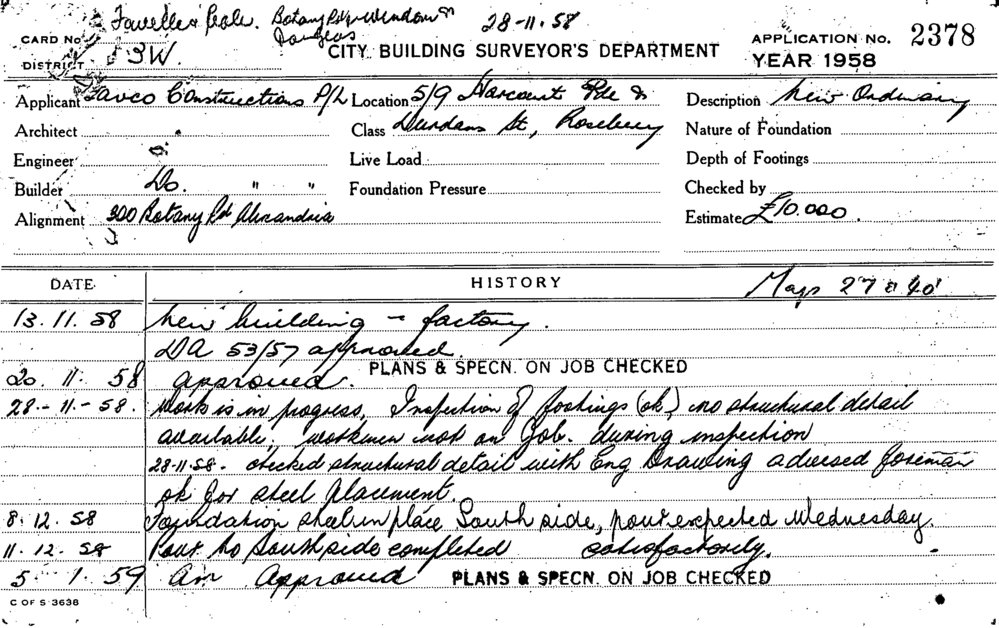 Favelle & Cole. Botany Rd & Wendover
Douglas 28-11-58
CARD No
DISTRICT SW. CITY BUILDING SURVEYOR'S DEPARTMENT APPLICATION No. 2378
YEAR 1958
Applicant Favco Constructions P/L Location 5/9 Harcourt Pde & Description New Ordinary
Architect Class Durdans St, Rosebery Nature of Foundation
Engineer Live Load Depth of Footings
Builder Do. " " Foundation Pressure Checked by
Alignment 300 Botany Rd Alexandria Estimate £10.000.
DATE HISTORY Maps 27 & 40
13.11.58 New building - factory.
DA 53/57 approved.
20. 11. 58 Approved. PLANS & SPECN. ON JOB CHECKED
28-11-58. Work is in progress, Inspection of footings (ok) no structural detail
available, workmen not on Job. during inspection
28-11-58. checked structural detail with Eng Drawing advised foreman
ok for steel placement.
8.12.58 Foundation steel in place South side, pour expected Wednesday.
11.12.58 Pour to South side completed satisfactorily.
5. 1. 59 Am Approved PLANS & SPECN. ON JOB CHECKED
C OF S 3638